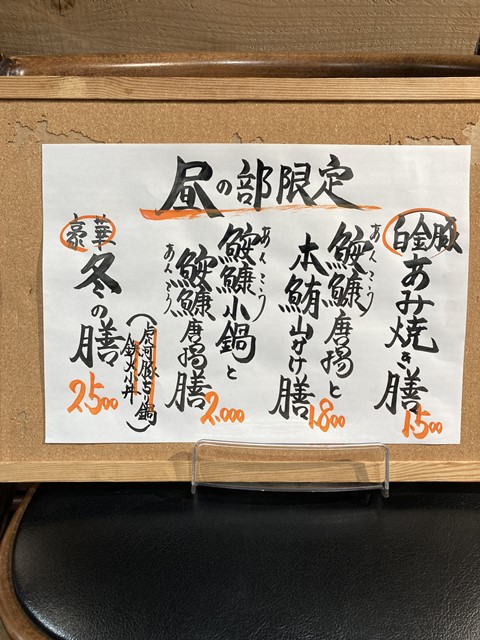 昼の部限定
白金豚
あみ焼き膳
1500
あんこう
鮟鱇唐揚と
本鮪山かけ膳
1800
あんこう
鮟鱇小鍋と
あんこう
鮟鱇唐揚膳
2.000
豪華
冬の膳
(虎河豚ちり鍋
鉄火小丼)
2500